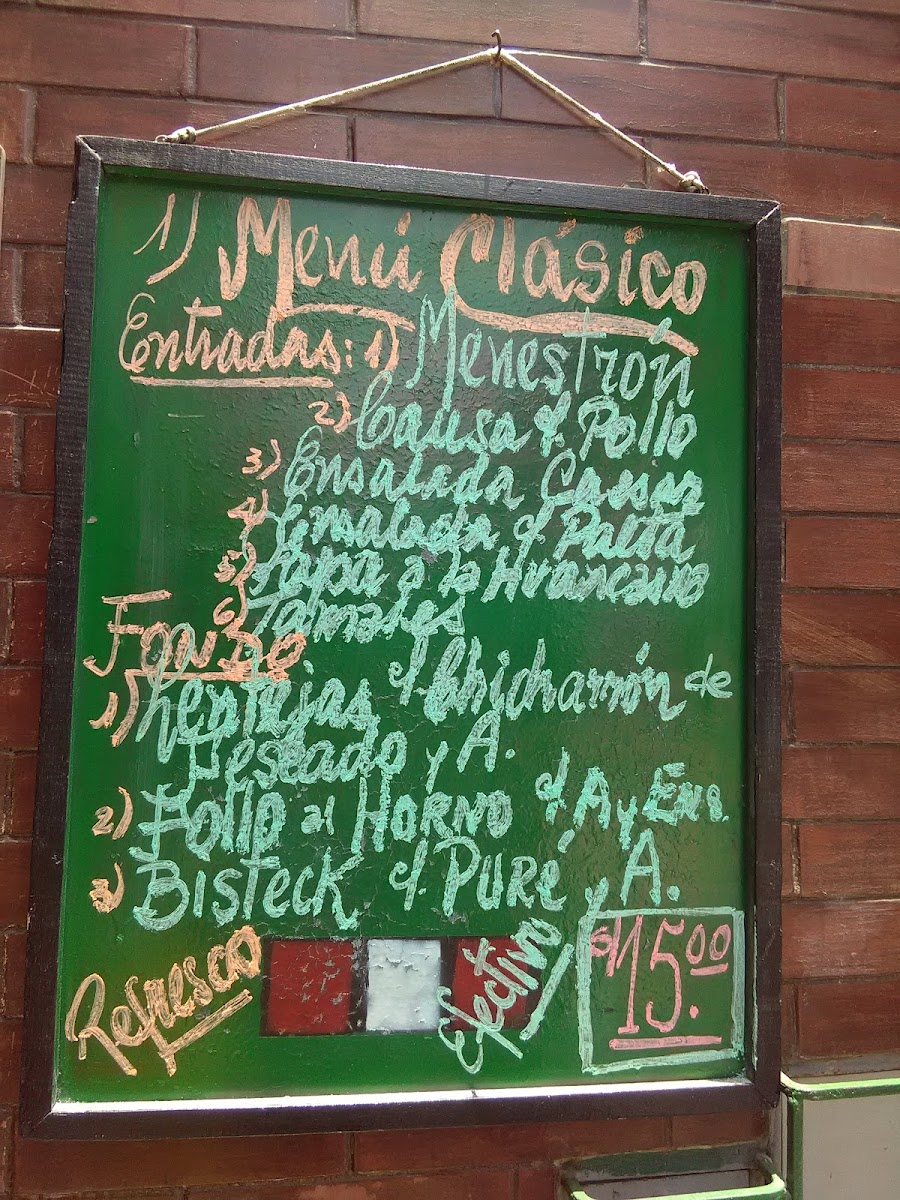 1) Menú Clásico
Entradas: 1) Menestrón
2) Causa d. Pollo
3) Ensalada Caesar
4) Ensalada d Palta
5) Papa a la Huancaina
6) Tamales
Fondo
1) Lentejas c/. Chicharrón de
Pescado y A.
2) Pollo al Horno c/ A y Ens.
3) Bisteck c/. Puré y A.
Refresco
Efectivo
s/15.00